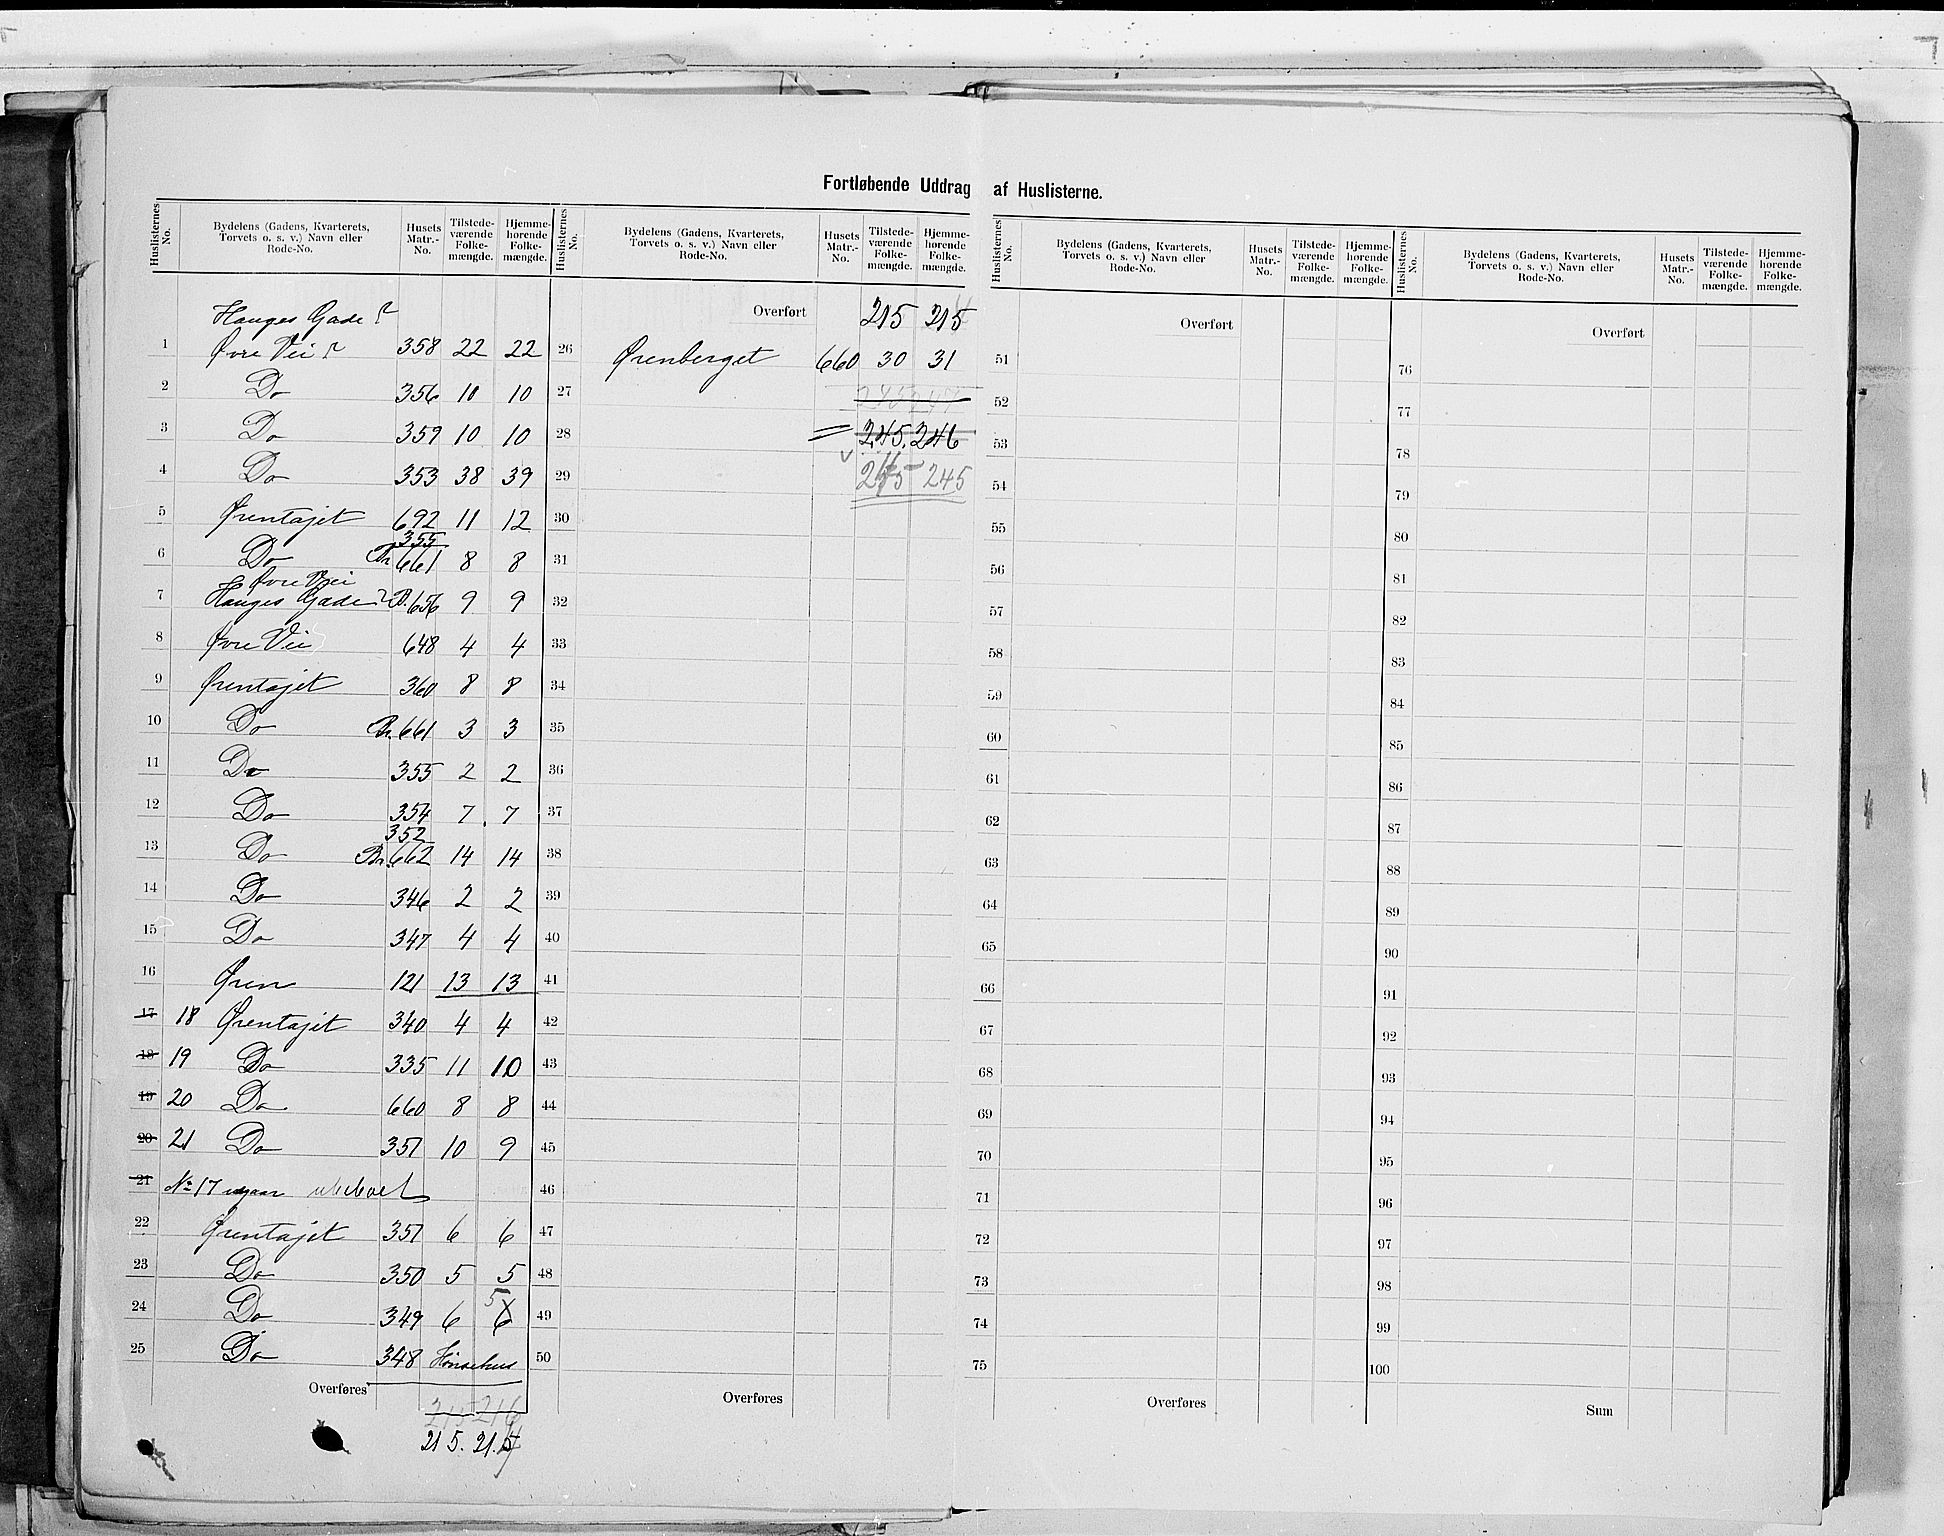 Fortløbende Uddrag af Huslisterne.
Huslisternes No. | Bydelens (Gadens, Kvarterets, Torvets o. s. v.) Navn eller Rode-No. | Husets Matr.-No. | Tilstede-værende Folke-mængde. | Hjemme-hørende Folke-mængde.
Hauges Gade ?
1 Øvre Vei ? 358 22 22
2 Do 356 10 10
3 Do 359 10 10
4 Do 353 38 39
5 Ørentajet 692 11 12
355
6 Do Br. 661 8 8
Øvre Vei
7 Hauges Gade ? B. 656 9 9
8 Øvre Vei 648 4 4
9 Ørentajet 360 8 8
10 Do Br. 661 3 3
11 Do 355 2 2
12 Do 354 7 7
352
13 Do Br. 662 14 14
14 Do 346 2 2
15 Do 347 4 4
16 Øren 121 13 13
17 18 Ørentajet 340 4 4
18 19 Do 335 11 10
19 20 Do 660 8 8
20 21 Do 351 10 9
21 No 17 ubeboet
22 Ørentajet 351 6 6
23 Do 350 5 5
5
24 Do 349 6 6
25 Do 348 Hönsehus
Overføres
215 216
215. 21.
Huslisternes No. | Bydelens (Gadens, Kvarterets, Torvets o. s. v.) Navn eller Rode-No. | Husets Matr.-No. | Tilstede-værende Folke-mængde. | Hjemme-hørende Folke-mængde.
Overført 215 215
26 Ørenberget 660 30 31
27 245 247
28 245. 246
29 245 245
30
31
32
33
34
35
36
37
38
39
40
41
42
43
44
45
46
47
48
49
50
Overføres
Huslisternes No. | Bydelens (Gadens, Kvarterets, Torvets o. s. v.) Navn eller Rode-No. | Husets Matr.-No. | Tilstede-værende Folke-mængde. | Hjemme-hørende Folke-mængde.
Overført
51
52
53
54
55
56
57
58
59
60
61
62
63
64
65
66
67
68
69
70
71
72
73
74
75
Overføres
Huslisternes No. | Bydelens (Gadens, Kvarterets, Torvets o. s. v.) Navn eller Rode-No. | Husets Matr.-No. | Tilstede-værende Folke-mængde. | Hjemme-hørende Folke-mængde.
Overført
76
77
78
79
80
81
82
83
84
85
86
87
88
89
90
91
92
93
94
95
96
97
98
99
100
Sum